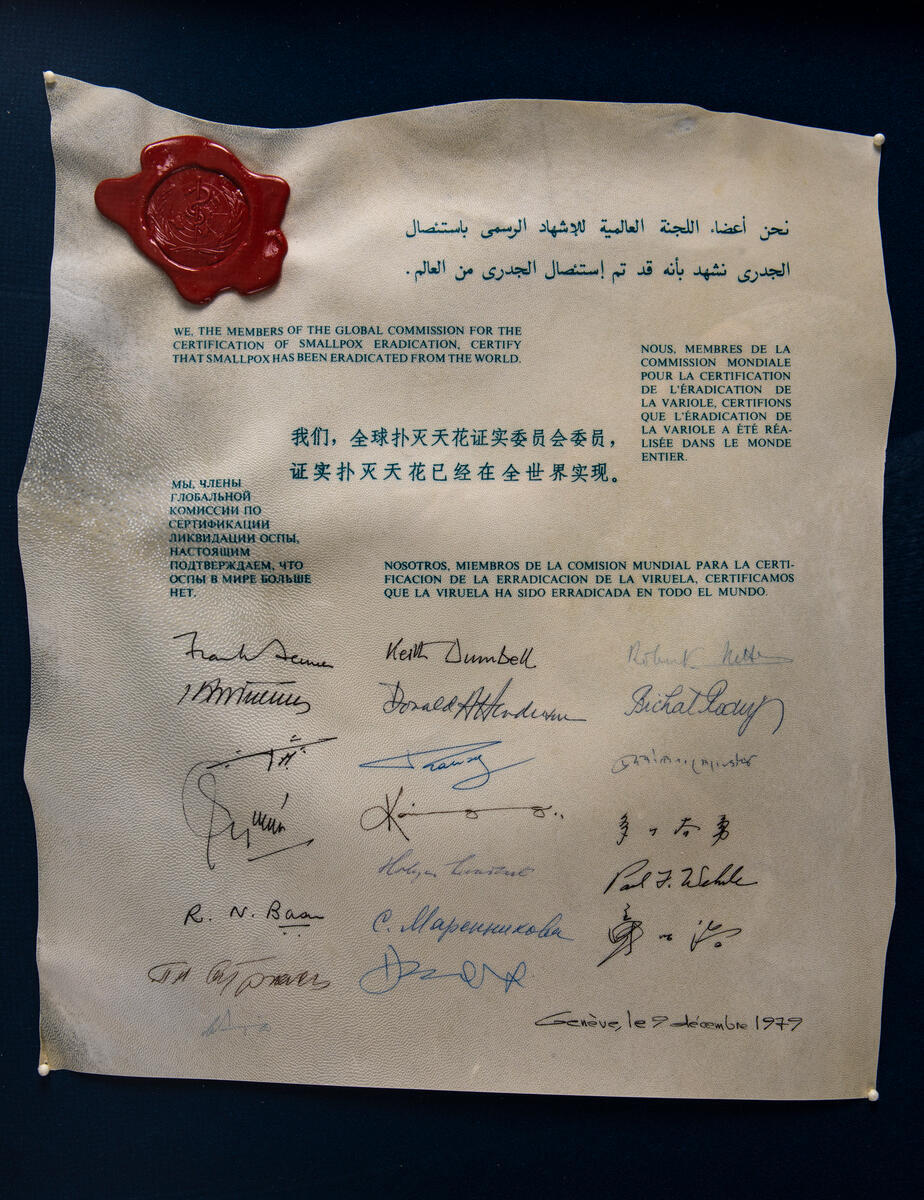 نحن أعضاء اللجنة العالمية للإشهاد الرسمى باستئصال
الجدرى نشهد بأنه قد تم إستئصال الجدرى من العالم .
WE, THE MEMBERS OF THE GLOBAL COMMISSION FOR THE
CERTIFICATION OF SMALLPOX ERADICATION, CERTIFY
THAT SMALLPOX HAS BEEN ERADICATED FROM THE WORLD.
NOUS, MEMBRES DE LA
COMMISSION MONDIALE
POUR LA CERTIFICATION
DE L'ÉRADICATION DE
LA VARIOLE, CERTIFIONS
QUE L'ÉRADICATION DE
LA VARIOLE A ÉTÉ RÉA-
LISÉE DANS LE MONDE
ENTIER.
我们，全球扑灭天花证实委员会委员，
证实扑灭天花已经在全世界实现。
МЫ, ЧЛЕНЫ
ГЛОБАЛЬНОЙ
КОМИССИИ ПО
СЕРТИФИКАЦИИ
ЛИКВИДАЦИИ ОСПЫ,
НАСТОЯЩИМ
ПОДТВЕРЖДАЕМ, ЧТО
ОСПЫ В МИРЕ БОЛЬШЕ
НЕТ.
NOSOTROS, MIEMBROS DE LA COMISION MUNDIAL PARA LA CERTI-
FICACION DE LA ERRADICACION DE LA VIRUELA, CERTIFICAMOS
QUE LA VIRUELA HA SIDO ERRADICADA EN TODO EL MUNDO.
Frank Fenner
Keith Dumbell
Robert
Donald A Henderson
Bichat Rodrigues
Paul F. Wehrle
R. N. Basu
С. Маренникова
Genève, le 9 décembre 1979